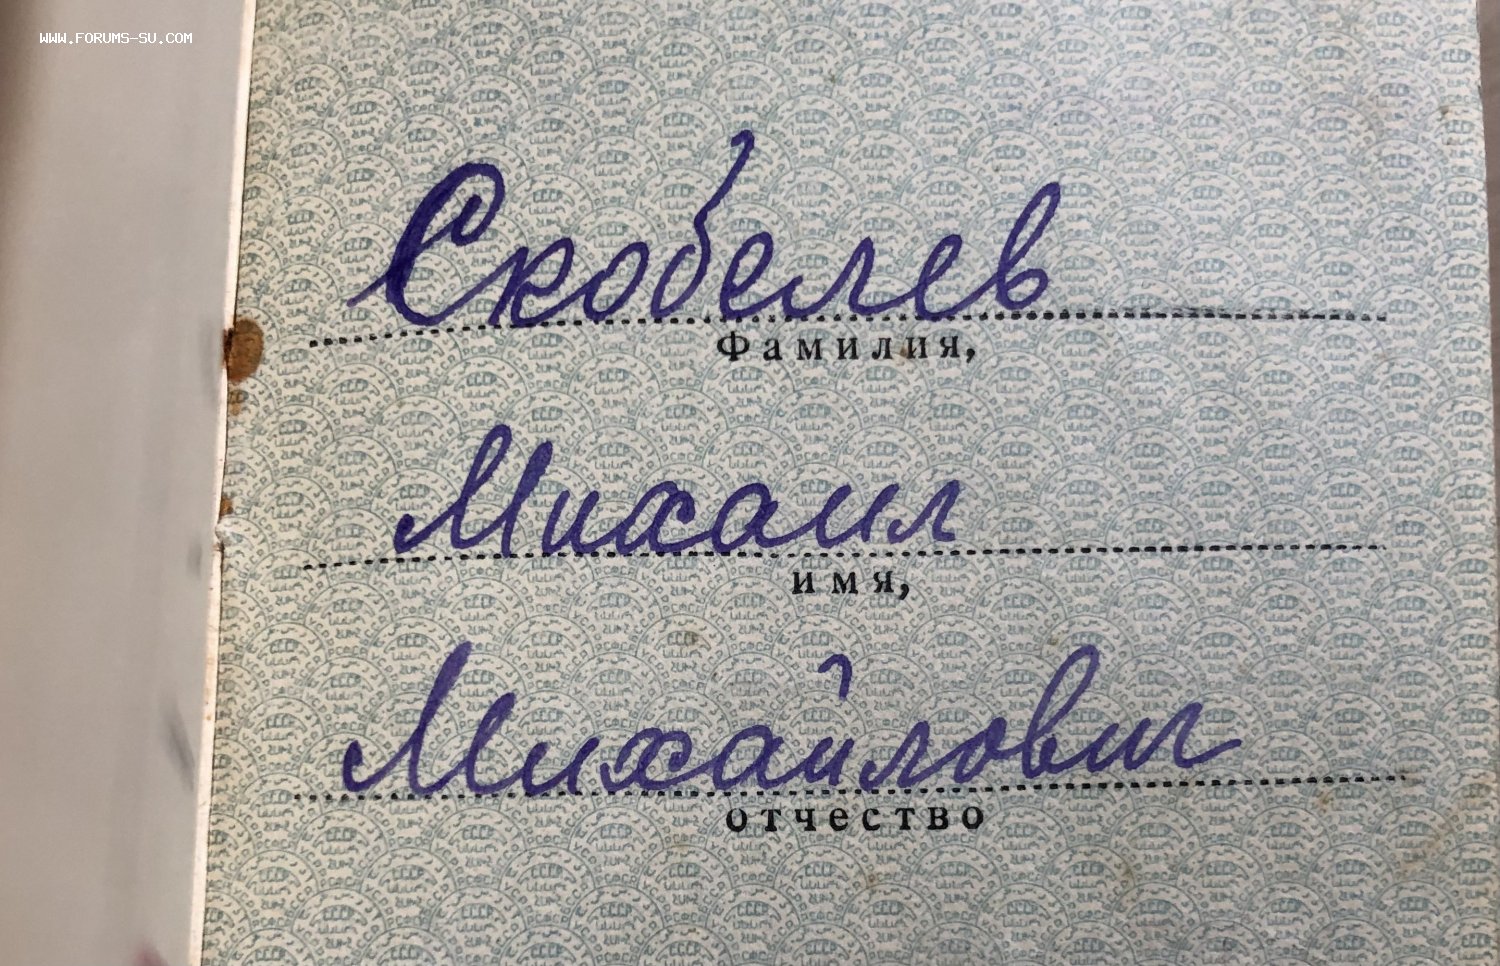 WWW.FORUMS-SU.COM
Скобелев
Фамилия,
Михаил
имя,
Михайлович
отчество